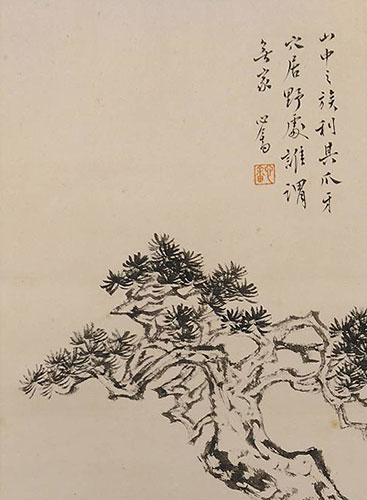 山中之族利其爪牙
穴居野處誰謂
無家 心畬